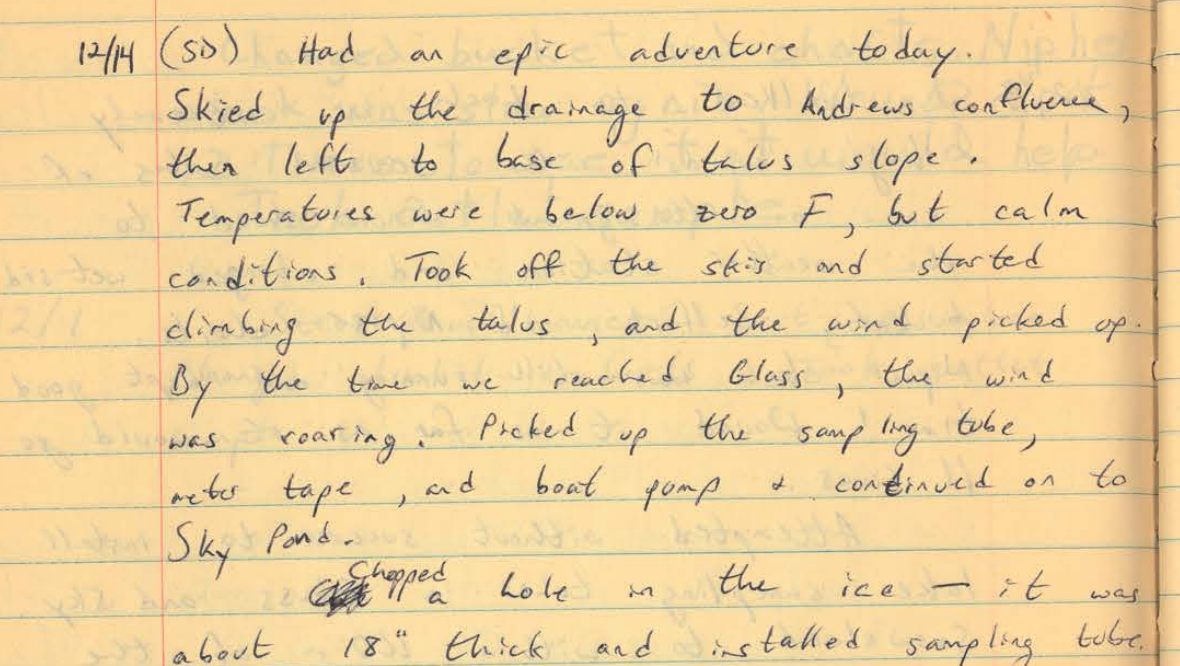 12/14 (SD) Had an epic adventure today.
Skied up the drainage to Andrews confluence,
then left to base of talus slope.
Temperatures were below zero F, but calm
conditions. Took off the skis and started
climbing the talus, and the wind picked up.
By the time we reached Glass, the wind
was roaring. Picked up the sampling tube,
meter tape, and boat pump & continued on to
Sky Pond.
Chopped
a hole in the ice — it was
about 18" thick and installed sampling tube.